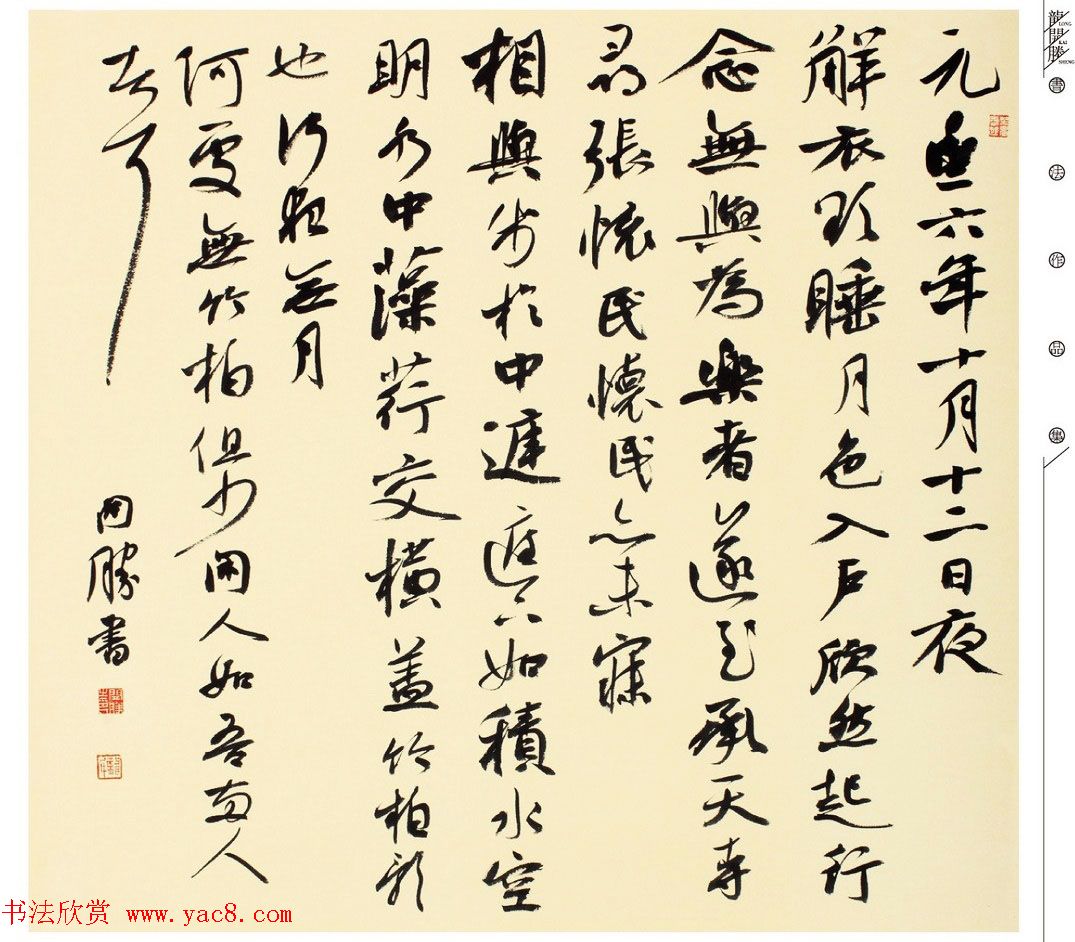 元豐六年十月十二日夜
解衣欲睡月色入户欣然起行
念無與為樂者遂至承天寺
尋張懷民懷民亦未寢
相與步於中庭庭下如積水空
明水中藻荇交橫蓋竹柏影
也何夜無月
何處無竹柏但少閑人如吾兩人
者耳
開勝書
龍開勝
LONG
KAI
SHENG
書法作品集
书法欣赏 www.yac8.com